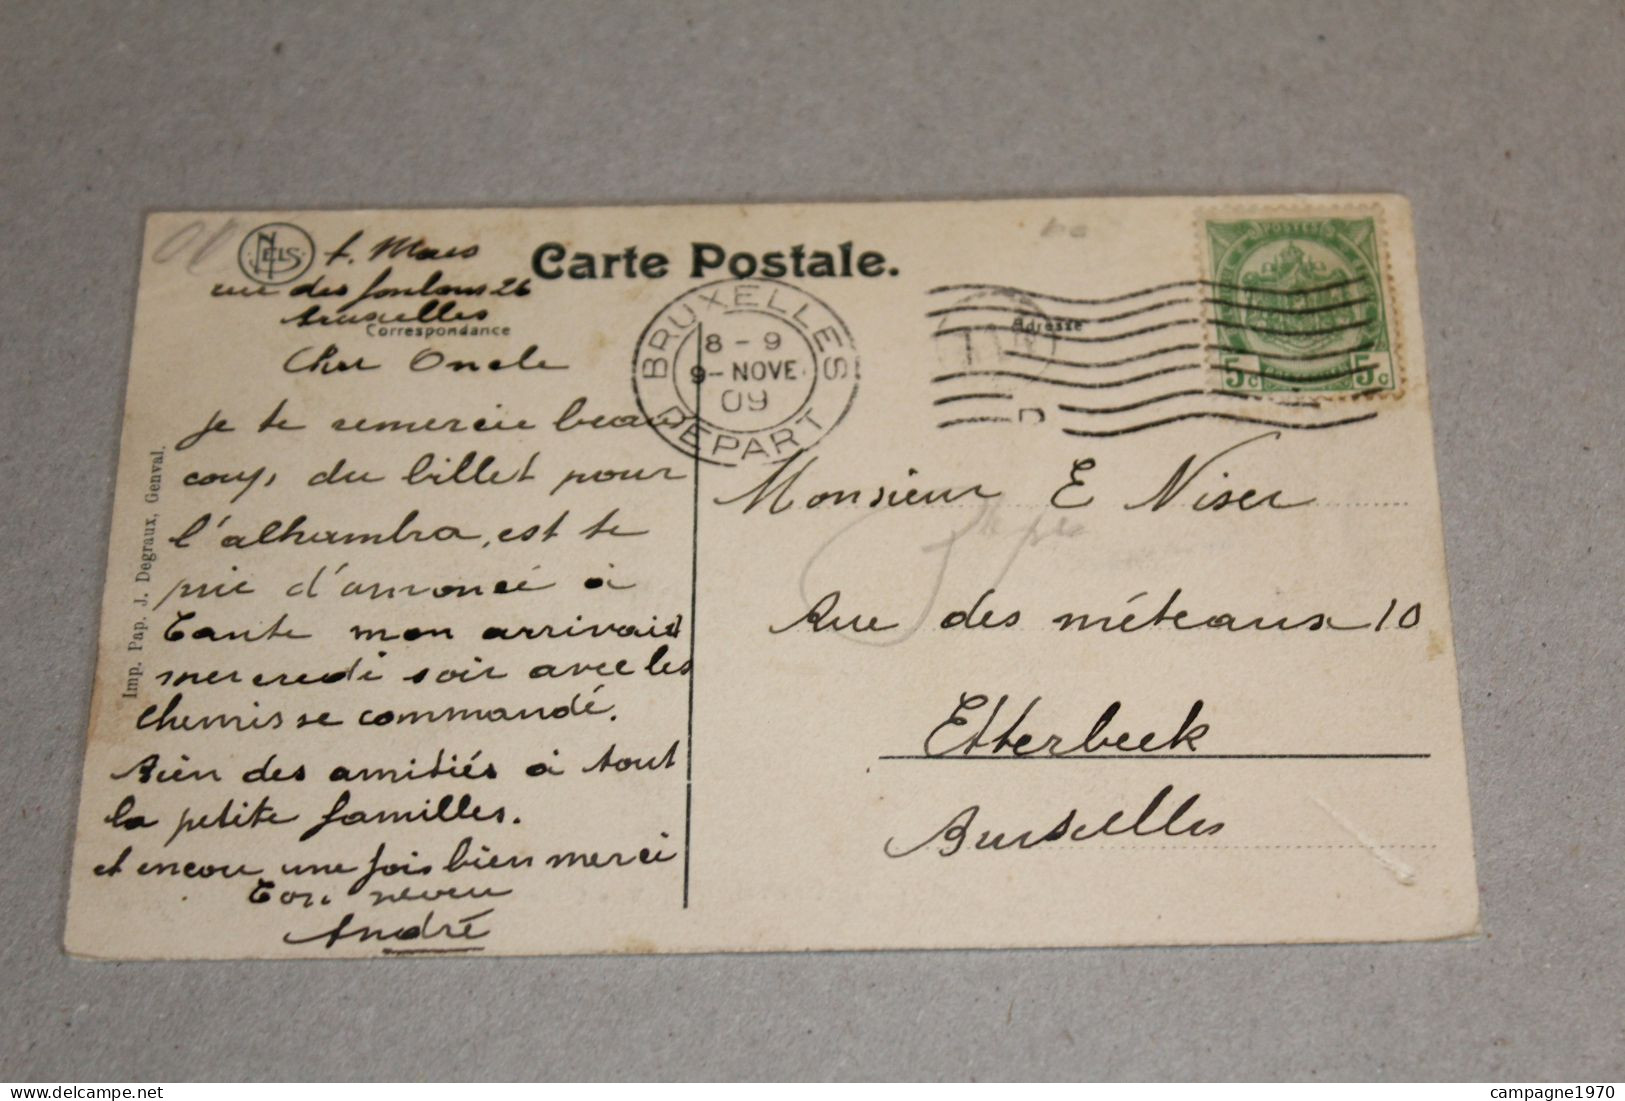 Carte Postale.
NELS
Maes
rue des foulons 26
Bruxelles
Correspondance
Cher Oncle
je te remercie beau
coup, du billet pour
l'alhambra, est te
prie d'annoncé à
Tante mon arrivait
mercredi soir avec les
chemisse commandé.
Bien des amitiés à tout
la petite familles.
et encore une fois bien merci
Ton neveu
André
Imp. Pap. J. Degraux, Genval.
BRUXELLES
8 - 9
9 - NOVE.
09
DEPART
Adresse
POSTES
5c 5c
Monsieur E Niser
Rue des méteaux 10
Etterbeek
Bruxelles
campagne1970